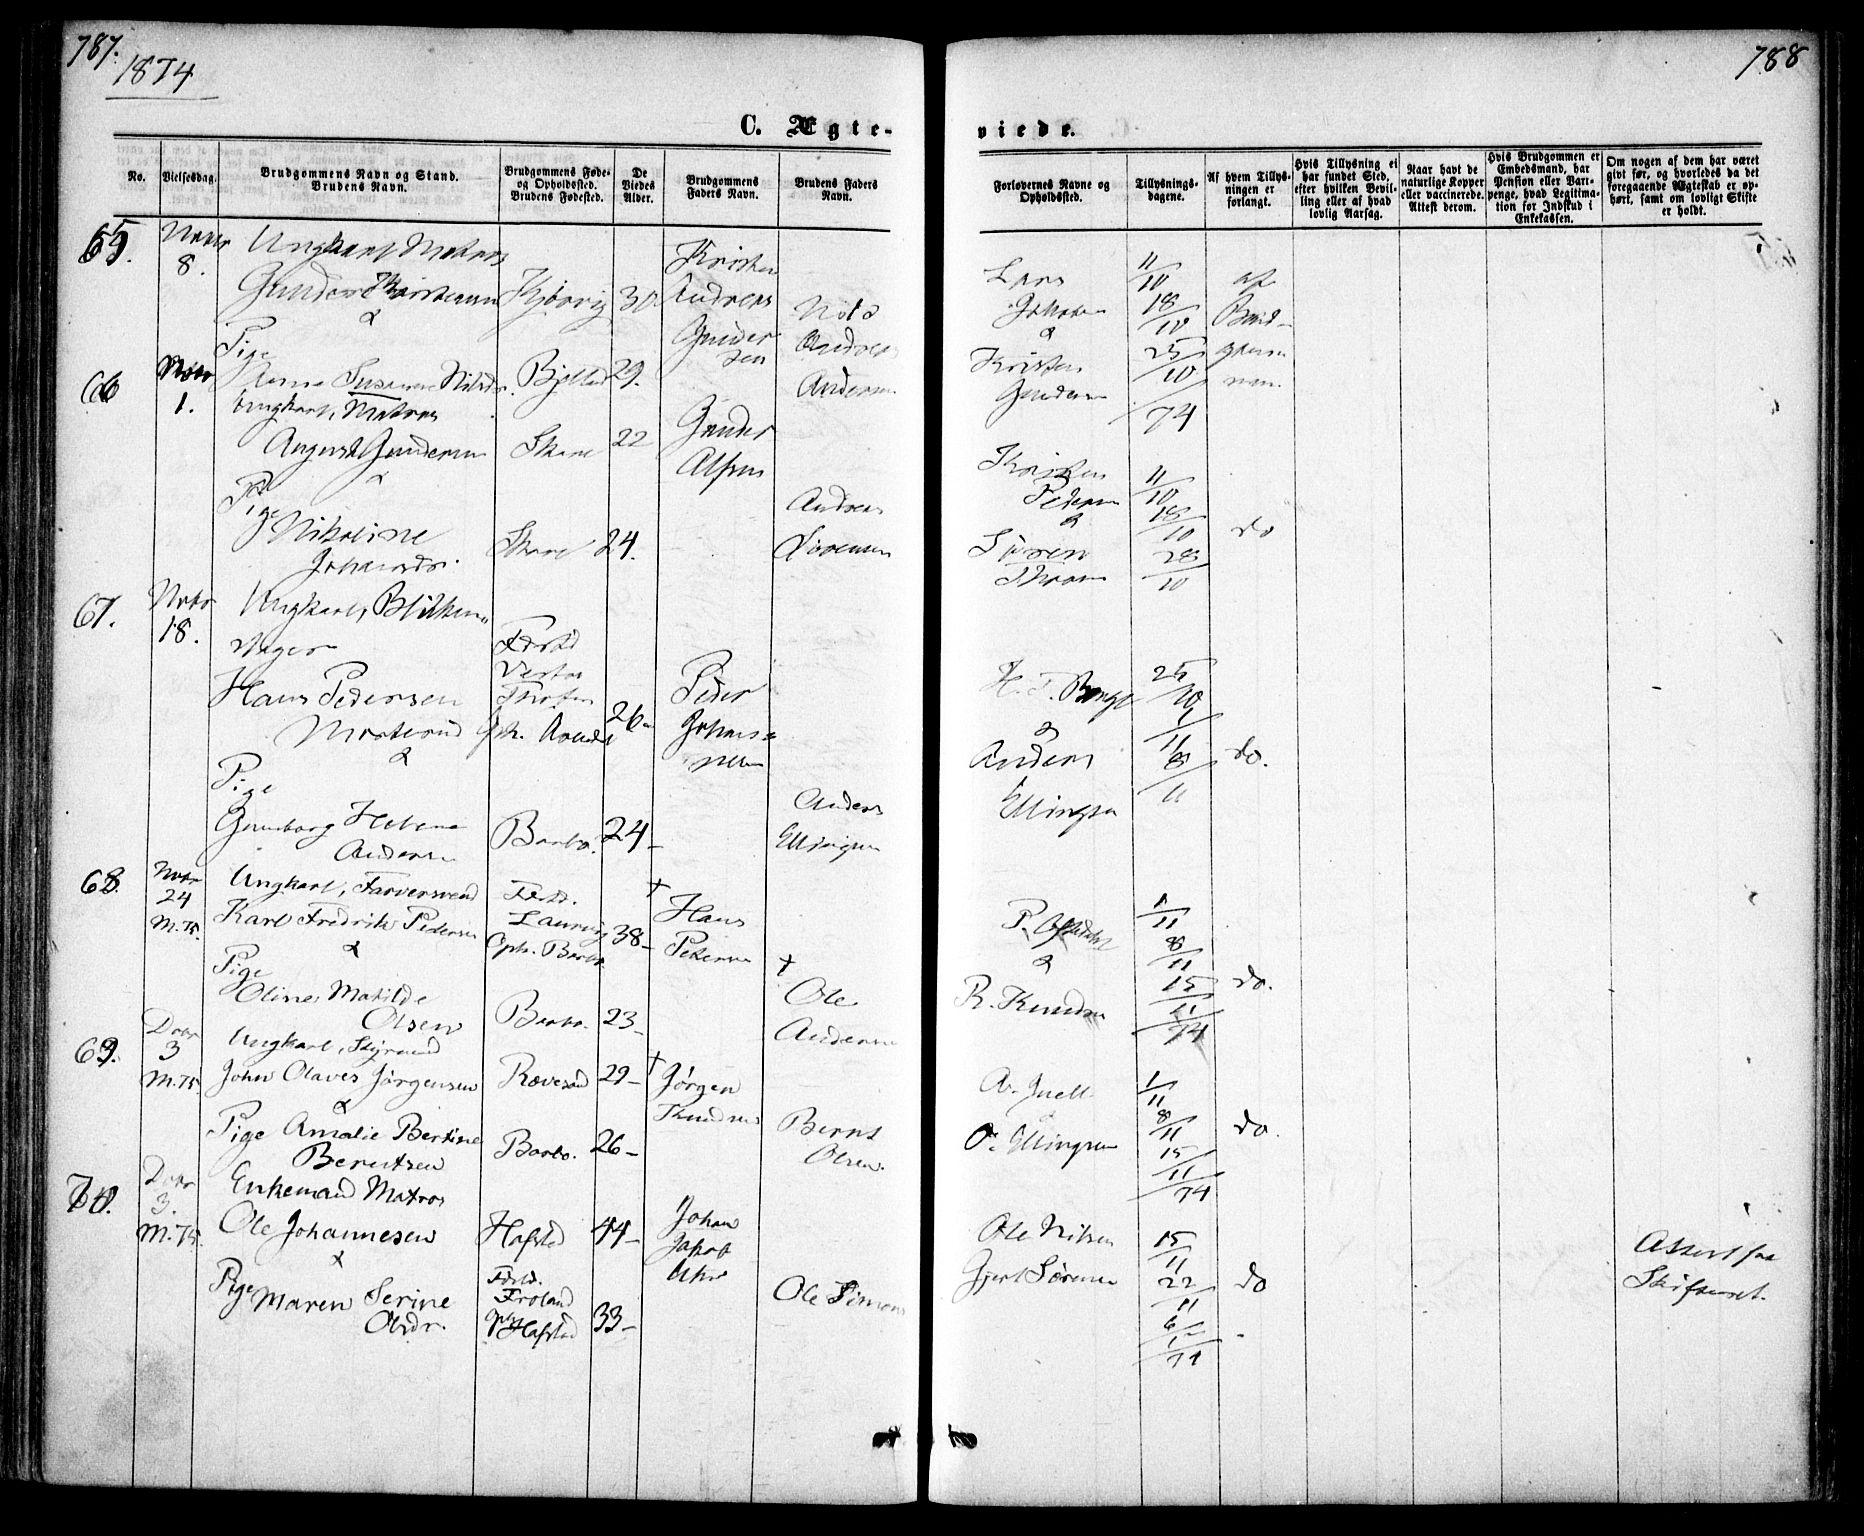 787.
1874
C. Ægte-
No.
Vielsesdag.
Brudgommens Navn og Stand.
Brudens Navn.
Brudgommens Føde-
og Opholdssted.
Brudens Fødested.
De
Viedes
Alder.
Brudgommens
Faders Navn.
Brudens Faders
Navn.
65.
Novbr
8.
Ungkarl Matros
Gunder Kristensen
&
Pige
Anna Susanne Nilsdr.
30
29.
Kristen
Andreas
Gunder
sen
Andreas
Andersen
66
Novbr
1.
Ungkarl, Matros
August Gundersen
&
Pige
Nikoline
Johansdr.
Skare
22
Skare
24.
Gunder
Alfsen
Andreas
Sørensen
67.
Novbr
18.
Ungkarl, Blikken-
slager
Hans Pedersen
&
Pige
Gunborg Helene
Andersen
Fødested
Vestre
Thoten
Oph. Arendal
26-
Barbo.
24-
Peder
Johans-
sen
Anders
Ellingsen
68.
Novbr
24
M.75.
Ungkarl, Farversvend
Karl Fredrik Pedersen
&
Pige
Oline Matilde
Olsen
Fødst.
Laurvig
Oph. Barbo
38-
Barbo.
23-
†
Hans
Petersen
†
Ole
Andersen
69.
Decbr
3
M.75
Ungkarl, Styrmand
John Olaves Jørgensen
&
Pige Amalie Bertine
Berntsen
Rævesand
29-
Barbo.
26-
†
Jørgen
Knudsen
Bernt
Olsen.
70.
Decbr
3.
M.75.
Enkemand Matros
Ole Johannesen
&
Pige Maren Serine
Olsdr.
Hafsted
44-
Fødst.
Froland
Oph. Hafsted
33-
Johan
Jakob
Ole Simons
788
viede.
Forlovernes Navne og
Opholdssted.
Tillysnings-
dagene.
Af hvem Tillys-
ningen er
forlangt.
Hvis Tillysning ei
har fundet Sted,
efter hvilken Bevil-
ling eller af hvad
lovlig Aarsag.
Naar havt de
naturlige Kopper
eller vaccinerede.
Attest derom.
Hvis Brudgommen er
Embedsmand, har
Pension eller Vart-
penge, hvad Legitima-
tion for Indskud i
Enkekassen.
Om nogen af dem har været
givt før, og hvorledes da det
foregaaende Ægteskab er op-
hørt, samt om lovligt Skifte
er holdt.
Lars
Johnsen
&
Kristen
Gundersen
11/10
18/10
25/10
74
af
Brud-
gommen
Kristen
Pedersen
&
Søren
11/10
18/10
do
H. T. Bengt
&
Anders
Ellingsen
25/10
1/11
8/11
do.
&
R. Knudsen
1/11
8/11
15/11
74
do.
A. Juell
&
O. Ellingsen
1/11
8/11
15/11
74
do.
Ole Nilsen
Gjert Sørensen
15/11
22/11
do
Attest fra
Skifteret.